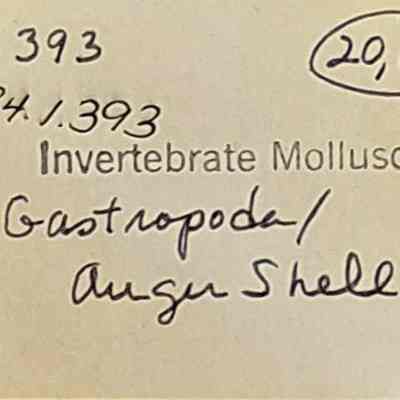 393 20,
4.1.393
Invertebrate Mollusc
Gastropoda/
Auger Shell